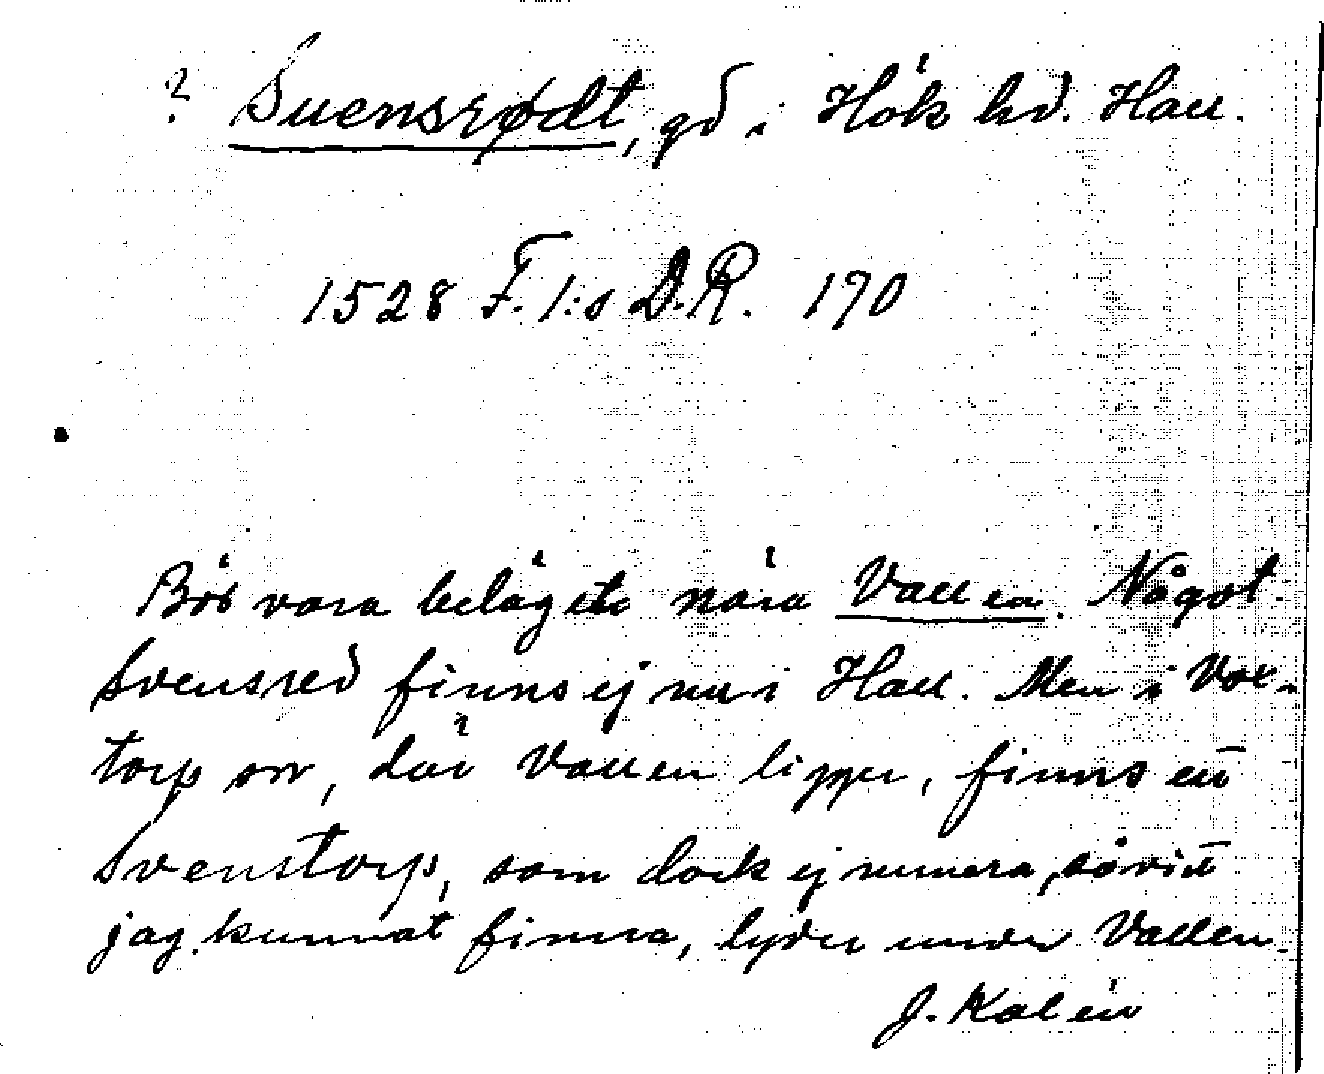 ? Suensrødt, gd i Hök hd. Hall.
1528 F. I:s D.R. 170
Bör vara beläget nära Vallen. Något
Svensred finns ej nu i Hall. Men i Vox-
torp sn, där Vallen ligger, finns ett
Svenstorp, som dock ej numera, såvitt
jag kunnat finna, lyder under Vallen.
J. Kalén